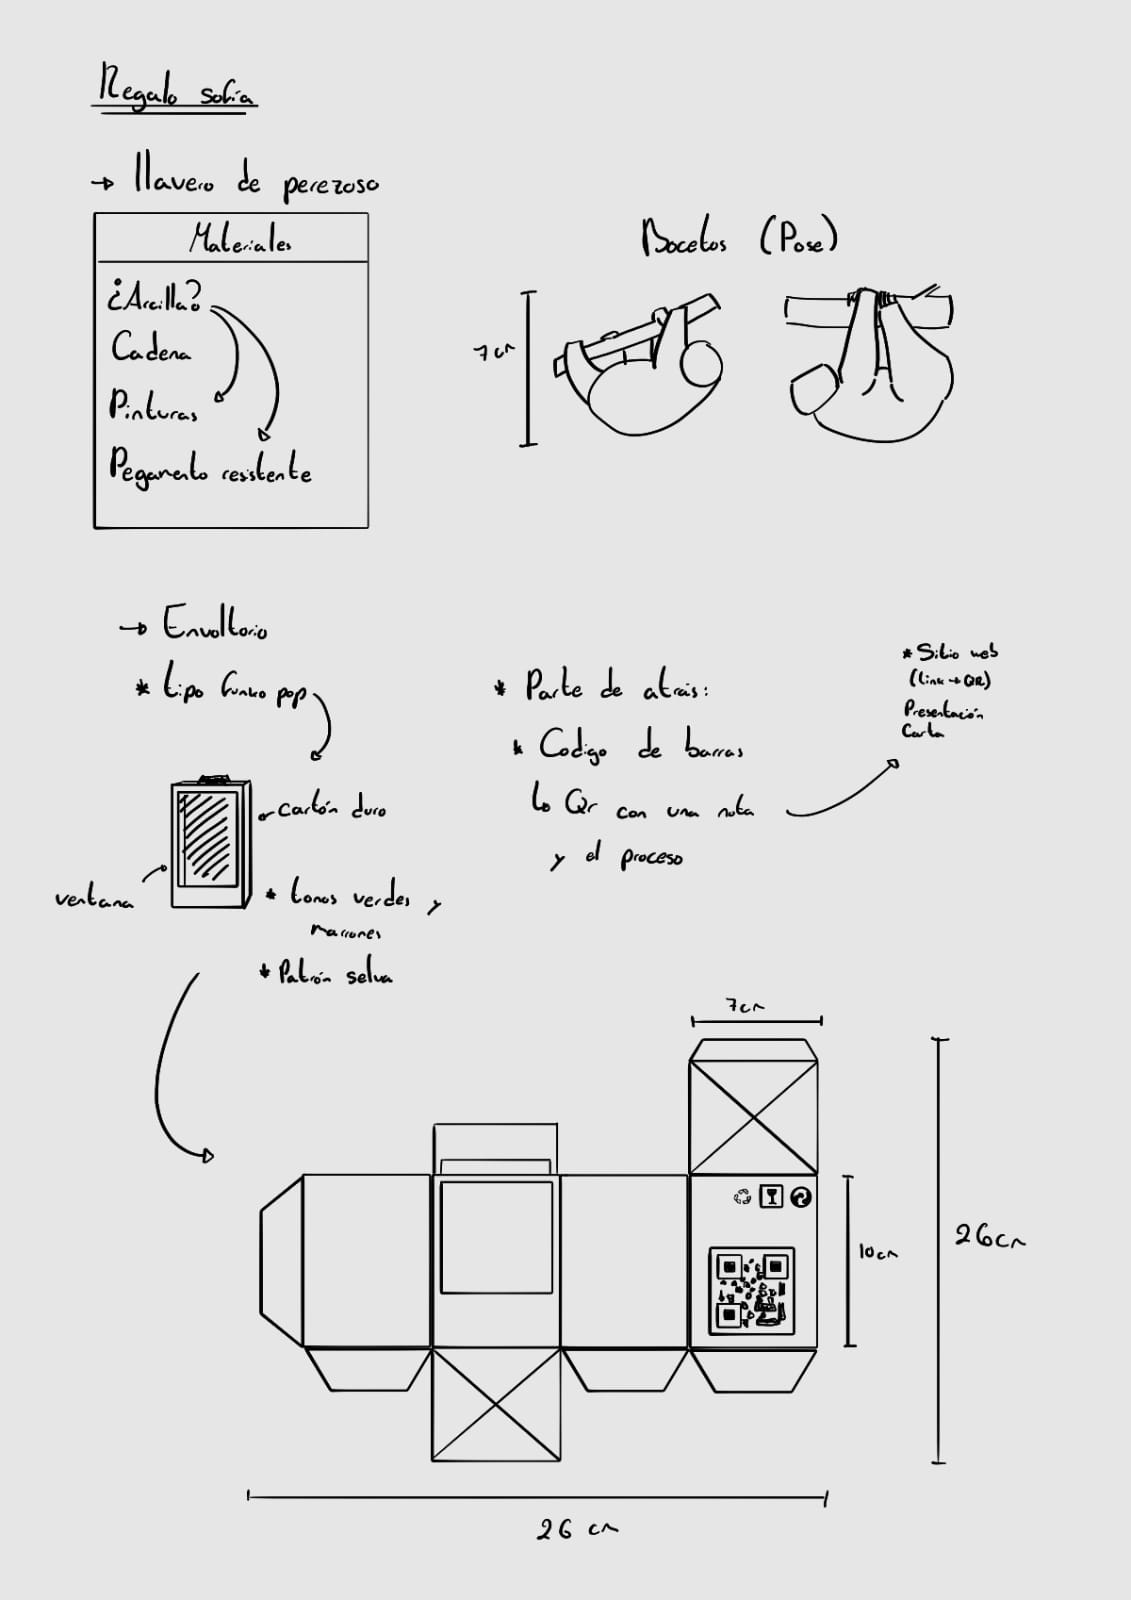 Regalo sofía
→ llavero de perezoso
Materiales
¿Arcilla?
Cadena
Pinturas
Pegamento resistente
Bocetos (Pose)
7cm
→ Envoltorio
* tipo funko pop
cartón duro
ventana
* tonos verdes y
marrones
* Patrón selva
* Parte de atrás:
* Codigo de barras
↳ Qr con una nota
y el proceso
* Sitio web
(link → QR)
Presentación
Carta
7cm
10cm
26cm
26 cm